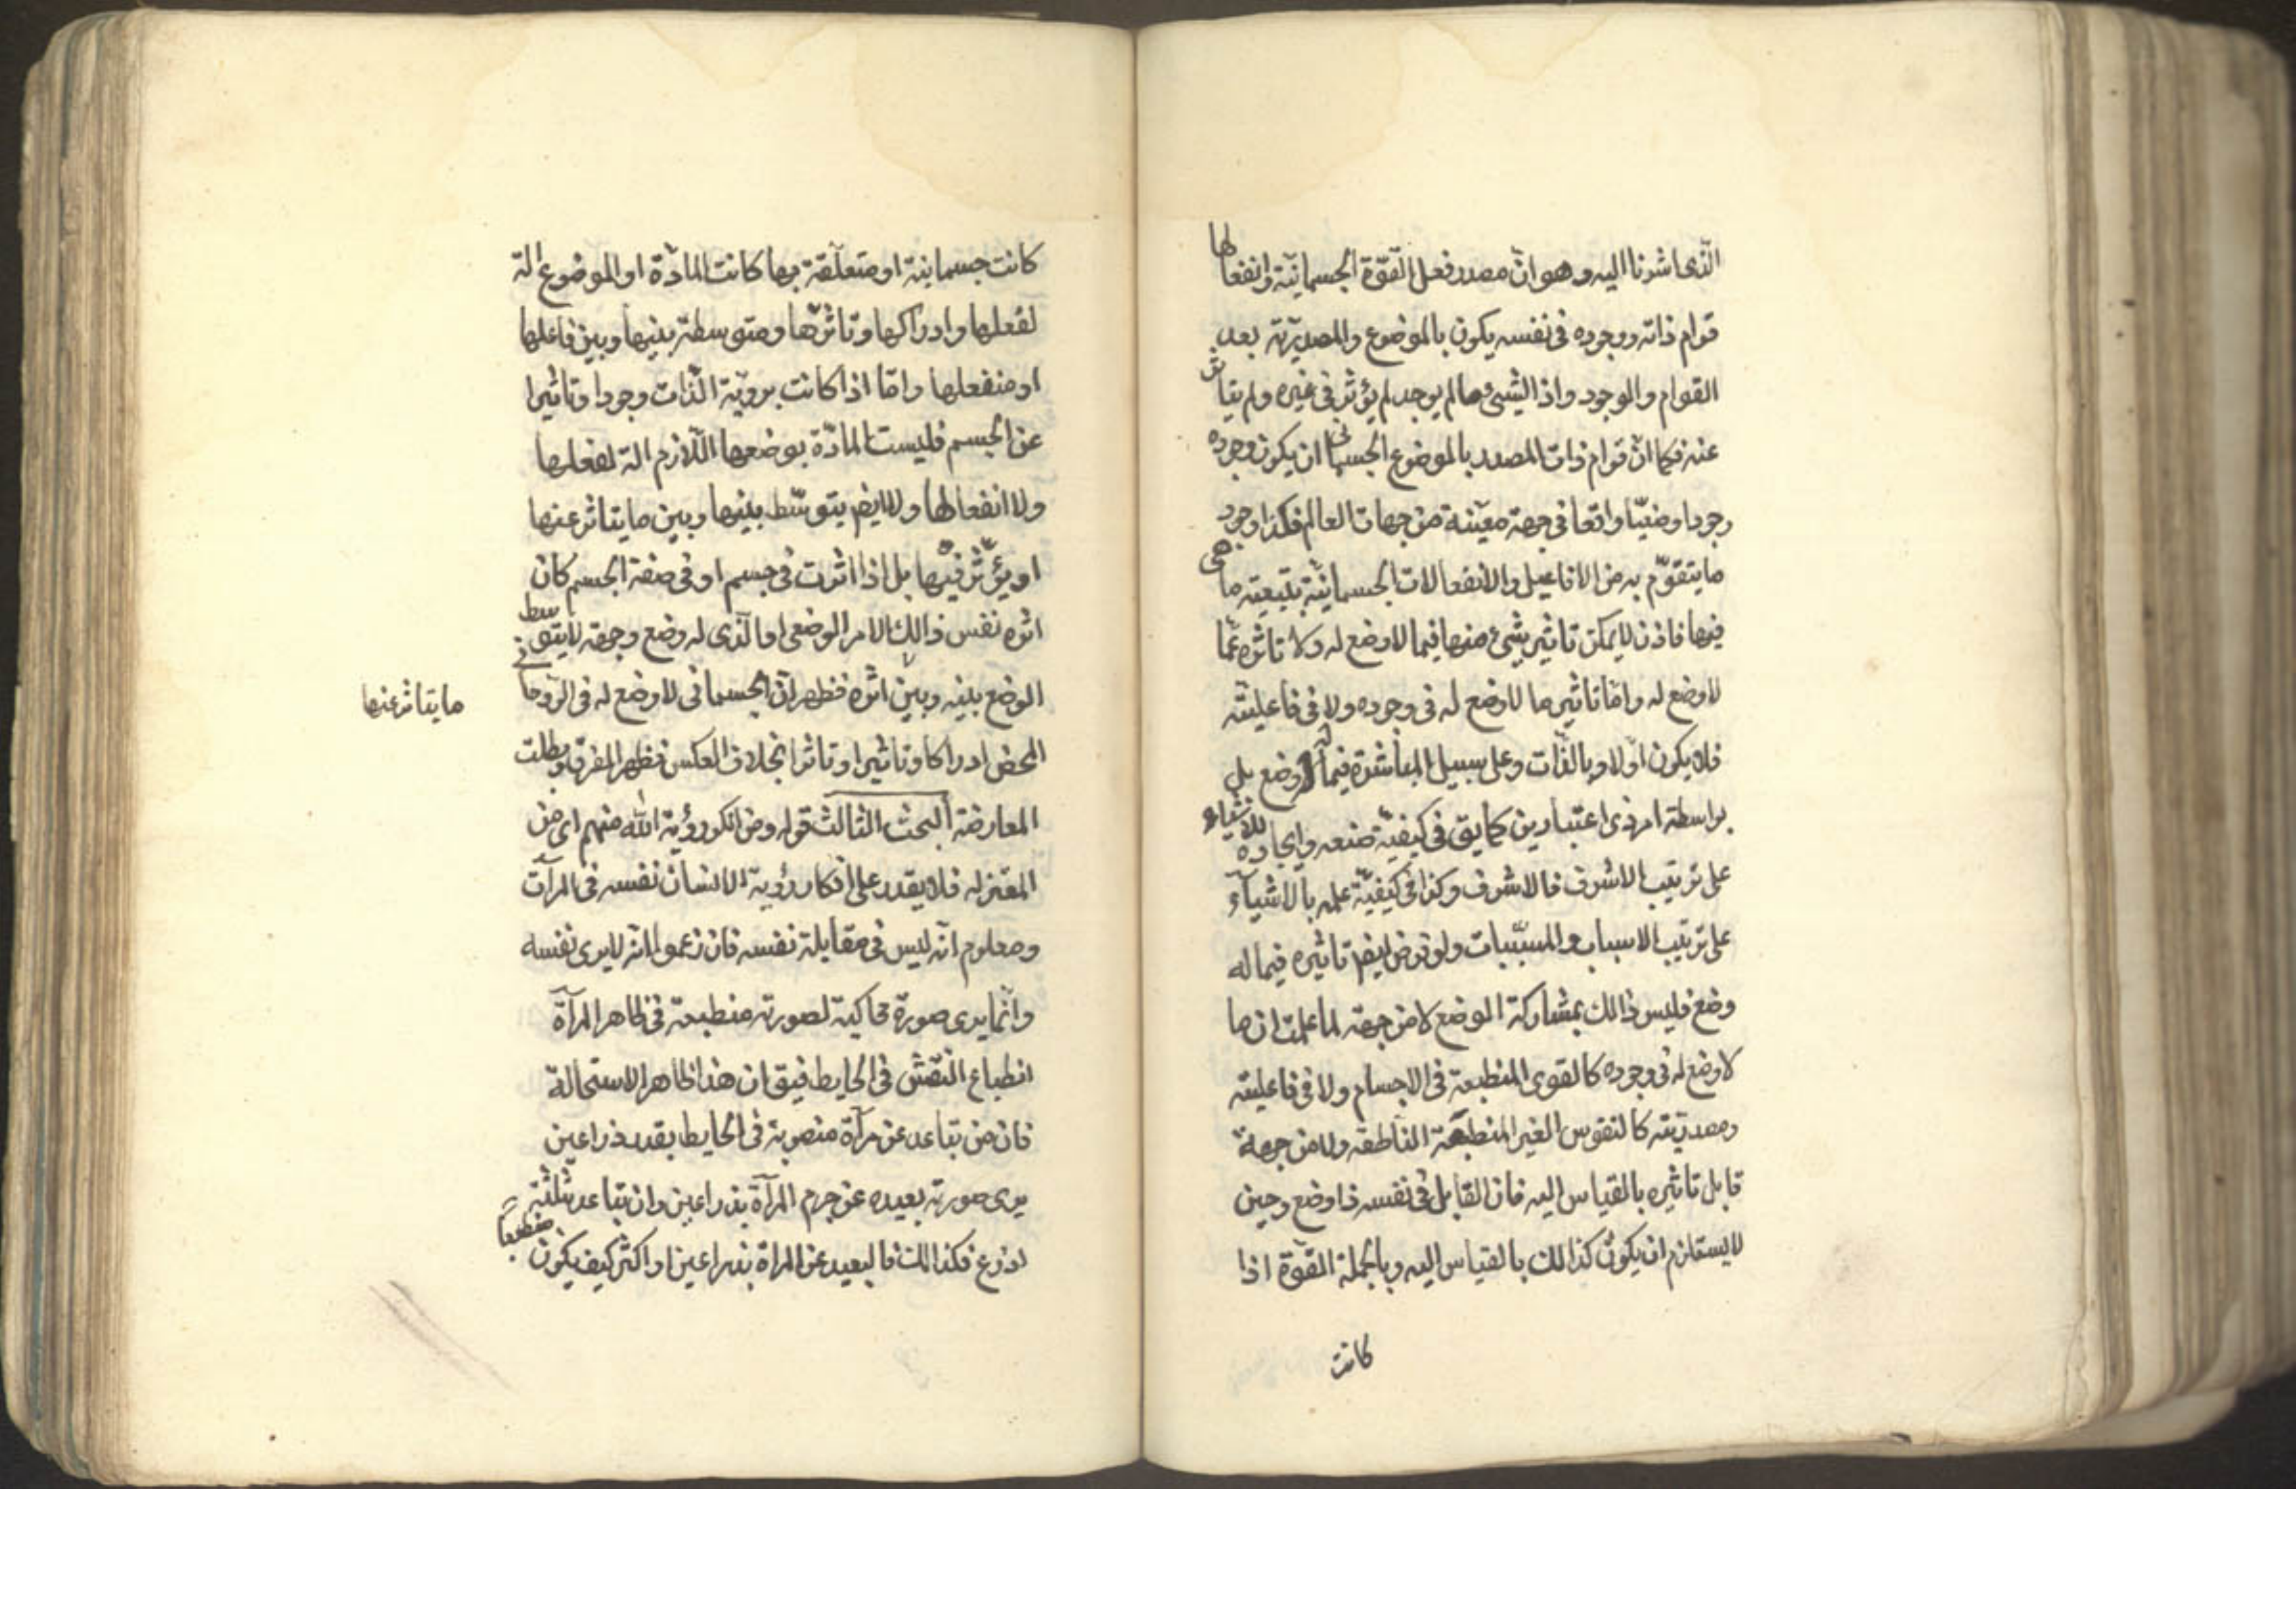 الّذى اشرنا اليه وهو انّ مصدر فعل القوّة الجسمانيّة وانفعالها
قوام ذاته ووجوده فى نفسه يكون بالموضوع والمصدريّة بعد
القوام والوجود واذ الشئ ما لم يوجد لم يؤثر فى غيره ولم يتأثر
عنه فكما انّ قوام ذات المصدر بالموضوع الجسمانى ان يكون وجوده
وجودا وضعيّا واقعا فى جهة معيّنة من جهات العالم فكذا وجود
ما يتقوّم به من الافاعيل والانفعالات الجسمانيّة بتبعيّة ما هى
فيها فاذن لا يمكن تاثير شئ منها فيما لا وضع له ولا تاثره عمّا
لا وضع له وامّا تاثير ما لا وضع له فى وجوده ولا فى فاعليّته
فلا يكون اوّلا وبالذّات وعلى سبيل المباشرة فيما له وضع بل
بواسطة امر ذى اعتبارين كما يق فى كيفيّة صنعه وايجاده للاشياء
على ترتيب الاشرف فالاشرف وكذا فى كيفيّة علمه بالاشيآء
على ترتيب الاسباب والمسبّبات ولو فرض ايضا تاثيره فيما له
وضع فليس ذالك بمشاركة الوضع لا من جهته لما علمت ان ما
لا وضع له فى وجوده كالقوى المنطبعة فى الاجسام ولا فى فاعليته
ومصدريّته كالنفوس الغير المنطبعة الناطقه ولا من جهة
قابل تاثيره بالمقياس اليه فان القابل فى نفسه ذا وضع وحين
لا يستلزم ان يكون كذالك بالقياس اليه وبالجملة القوّة اذا
كانت
كانت جسمانية او متعلّقة بها كانت المادّة او الموضوع الة
لفعلها وادراكها وتاثرّها ومتوسطة بينها وبين فاعلها
او منفعلها وامّا اذا كانت بروية الّذات وجودا وتاثيرا
عن الجسم فليست المادّة بوضعها اللّازم الة لفعلها
ولا انفعالها ولا ايضا يتوسّط بينها وبين ما يتاثر عنها
او يؤثّر فيها بل اذا اثرت فى جسم او فى صفة الجسم كان
اثره نفس ذالك الامر الوضعى او الّذى له وضع وجهة لا يتوسط
الوضع بينه وبين اثره فظهر انّ الجسمانى لا وضع له فى الرّوحانى
ما يتاثر عنها
المحض ادراكا وتاثيرا وتاثرا بخلاف العكس فظهر الفرق وبطلت
المعارضة البحث الثالث قوله ومن انكر رؤية الله منهم اى من
المعتزله فلا يقدر على انكار رؤية الانسان نفسه فى المرآت
ومعلوم انّه ليس فى مقابلة نفسه فان زعموا انه لا يرى نفسه
وانّما يرى صورة محاكية لصورته منطبعة فى ظاهر المرآة
انطباع النّقش فى الحايط فيق ان هذا ظاهر الاستحالة
فان من تباعد عن مرآة منصوبة فى الحايط بقدر ذراعين
يرى صورته بعيده عن جرم المرآة بذراعين وان تباعد بثلثة
اذرع فكذالك فالبعيد عن المراة بذراعين او اكثر كيف يكون منطبعا